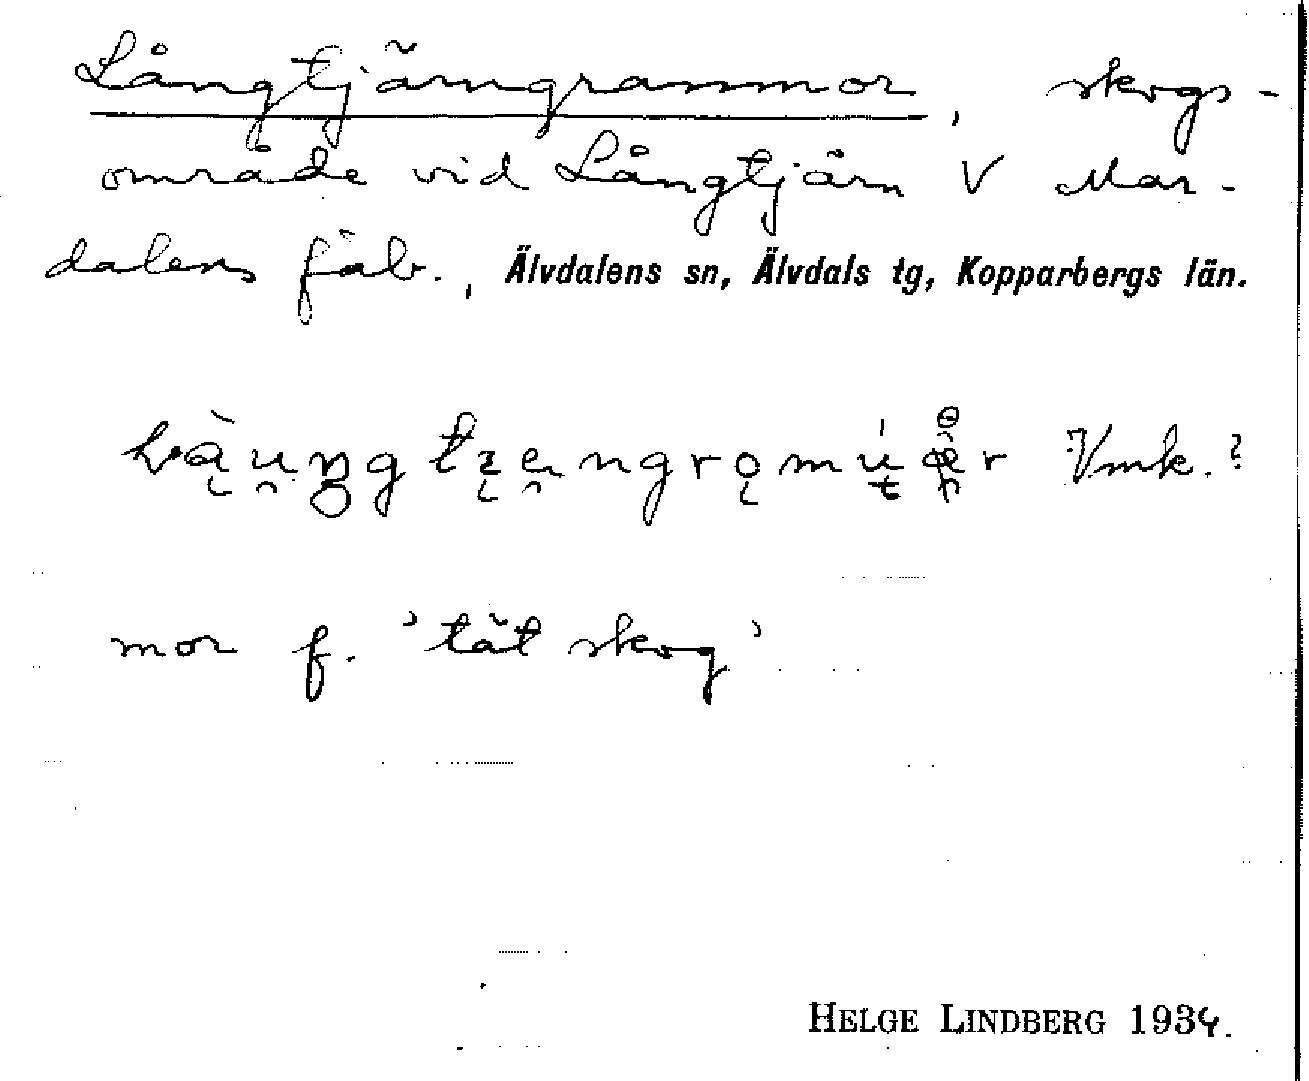 Långtjärngranmor, skogs-
område vid Långtjärn V Mar-
dalens fäb., Älvdalens sn, Älvdals tg, Kopparbergs län.
Vmk.?
mor f. 'tät skog'
HELGE LINDBERG 1934.